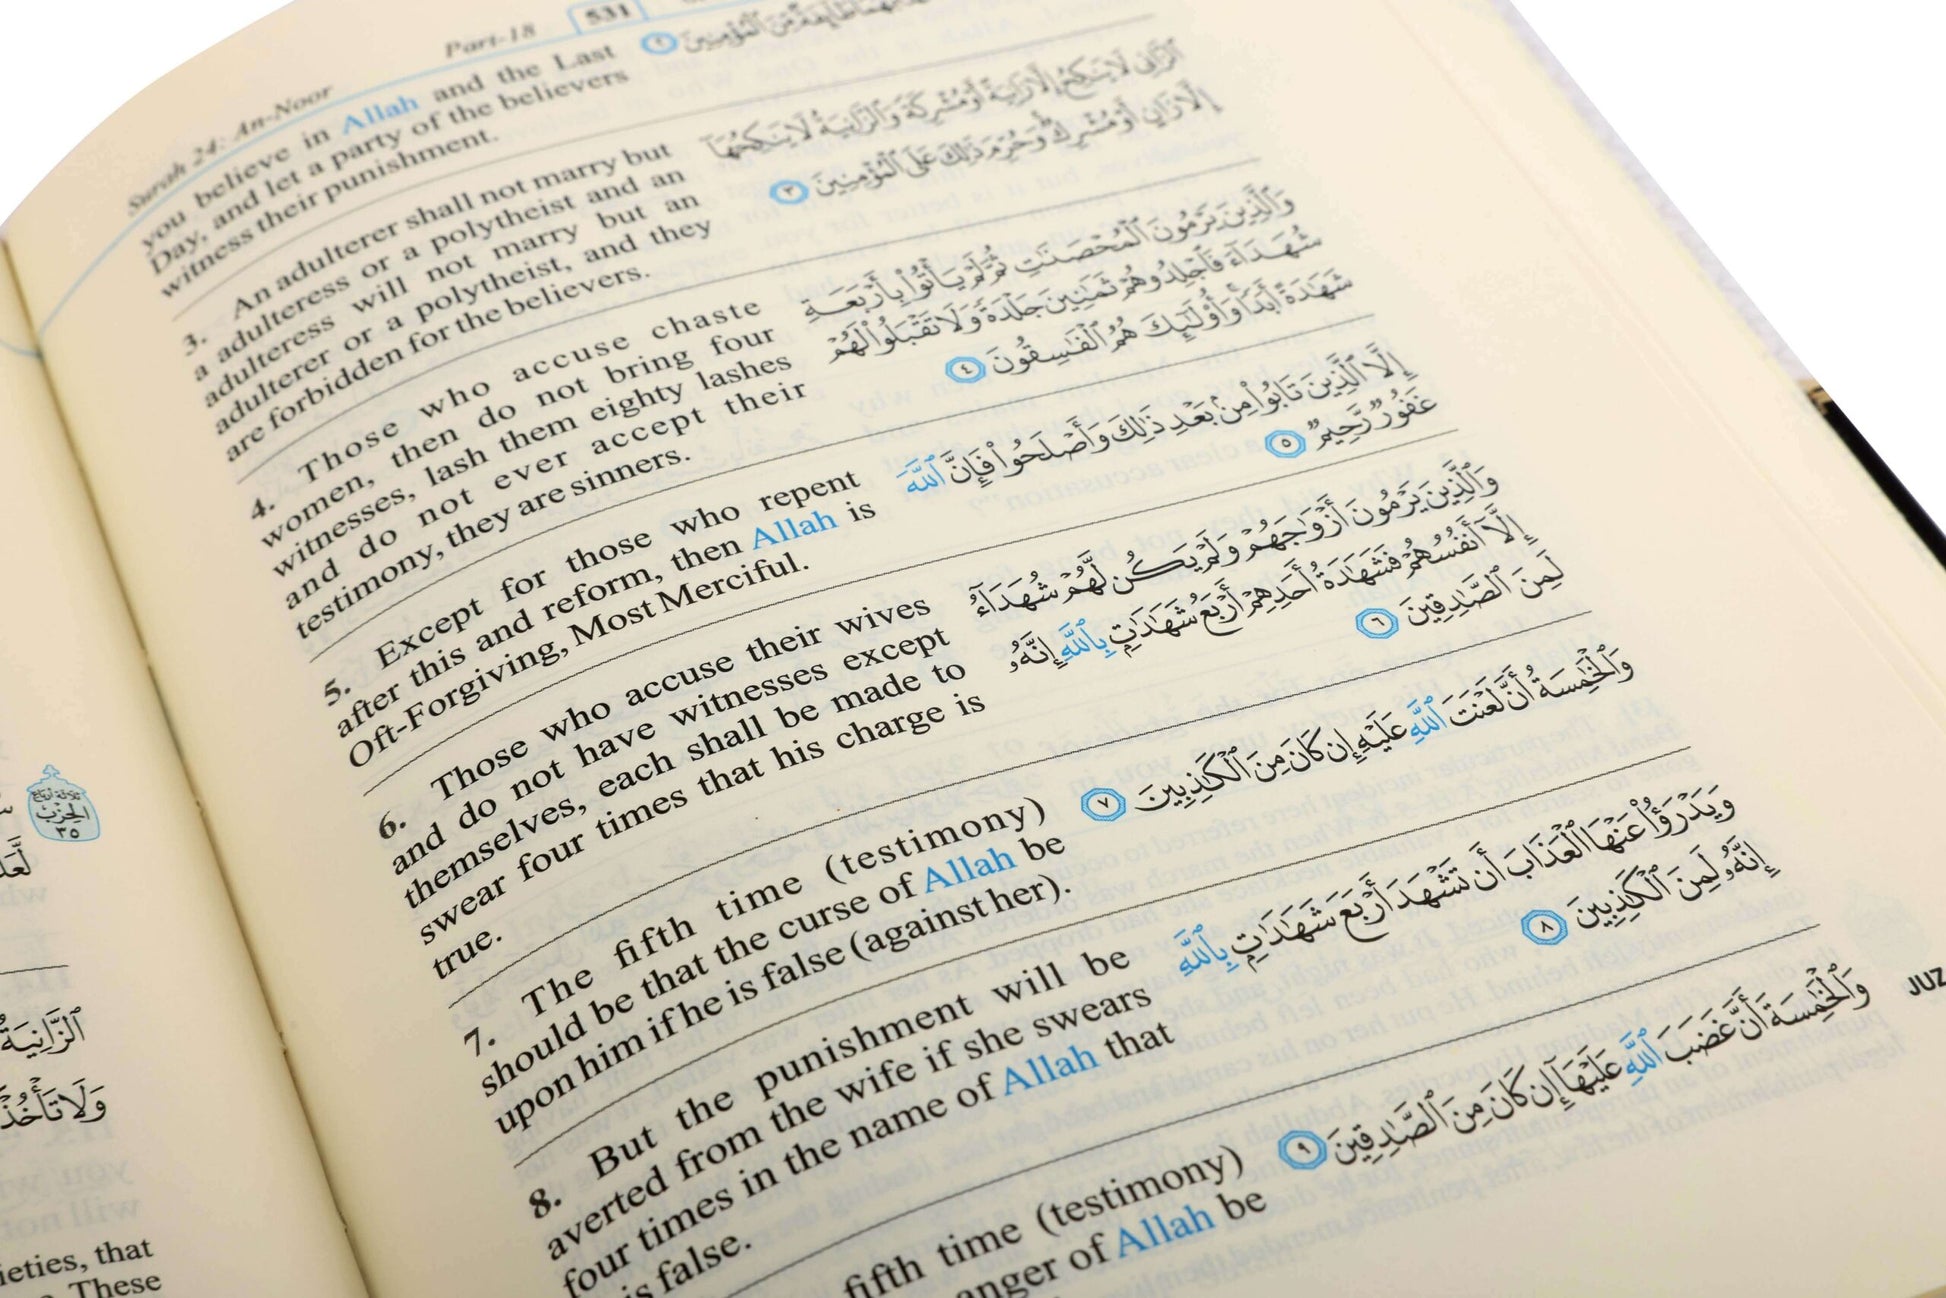 Surah 24: An-Noor
Part-18
531
you believe in Allah and the Last
Day, and let a party of the believers
witness their punishment.
3. An adulterer shall not marry but
a adulteress or a polytheist and an
adulteress will not marry but an
adulterer or a polytheist, and they
are forbidden for the believers.
4. Those who accuse chaste
women, then do not bring four
witnesses, lash them eighty lashes
and do not ever accept their
testimony, they are sinners.
5. Except for those who repent
after this and reform, then Allah is
Oft-Forgiving, Most Merciful.
6. Those who accuse their wives
and do not have witnesses except
themselves, each shall be made to
swear four times that his charge is
true.
7. The fifth time (testimony)
should be that the curse of Allah be
upon him if he is false (against her).
8. But the punishment will be
averted from the wife if she swears
four times in the name of Allah that
is false.
fifth time (testimony)
anger of Allah be
طَآئِفَةٌ مِّنَ ٱلْمُؤْمِنِينَ ٢
ٱلزَّانِى لَا يَنكِحُ إِلَّا زَانِيَةً أَوْ مُشْرِكَةً وَٱلزَّانِيَةُ لَا يَنكِحُهَآ
إِلَّا زَانٍ أَوْ مُشْرِكٌ وَحُرِّمَ ذَٰلِكَ عَلَى ٱلْمُؤْمِنِينَ ٣
وَٱلَّذِينَ يَرْمُونَ ٱلْمُحْصَنَٰتِ ثُمَّ لَمْ يَأْتُوا۟ بِأَرْبَعَةِ
شُهَدَآءَ فَٱجْلِدُوهُمْ ثَمَٰنِينَ جَلْدَةً وَلَا تَقْبَلُوا۟ لَهُمْ
شَهَٰدَةً أَبَدًا وَأُو۟لَٰٓئِكَ هُمُ ٱلْفَٰسِقُونَ ٤
إِلَّا ٱلَّذِينَ تَابُوا۟ مِنۢ بَعْدِ ذَٰلِكَ وَأَصْلَحُوا۟ فَإِنَّ ٱللَّهَ
غَفُورٌ رَّحِيمٌ ٥
وَٱلَّذِينَ يَرْمُونَ أَزْوَٰجَهُمْ وَلَمْ يَكُن لَّهُمْ شُهَدَآءُ
إِلَّآ أَنفُسُهُمْ فَشَهَٰدَةُ أَحَدِهِمْ أَرْبَعُ شَهَٰدَٰتٍۭ بِٱللَّهِ إِنَّهُۥ
لَمِنَ ٱلصَّٰدِقِينَ ٦
وَٱلْخَٰمِسَةُ أَنَّ لَعْنَتَ ٱللَّهِ عَلَيْهِ إِن كَانَ مِنَ ٱلْكَٰذِبِينَ ٧
وَيَدْرَؤُا۟ عَنْهَا ٱلْعَذَابَ أَن تَشْهَدَ أَرْبَعَ شَهَٰدَٰتٍۭ بِٱللَّهِ
إِنَّهُۥ لَمِنَ ٱلْكَٰذِبِينَ ٨
وَٱلْخَٰمِسَةَ أَنَّ غَضَبَ ٱللَّهِ عَلَيْهَآ إِن كَانَ مِنَ ٱلصَّٰدِقِينَ ٩
JUZ
ثلاثة أرباع
الحزب
٣٥
ٱلزَّانِيَةُ
وَلَا تَأْخُذْ
ieties, that
These